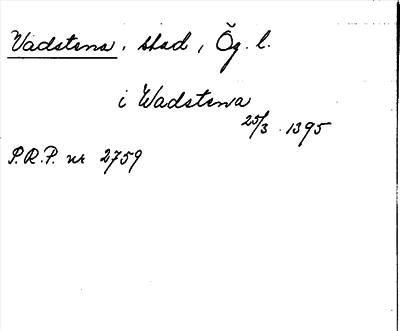 Vadstena, stad, Ög. l.
i Wadstena
25/3 1395
P.R.P. nr 2759